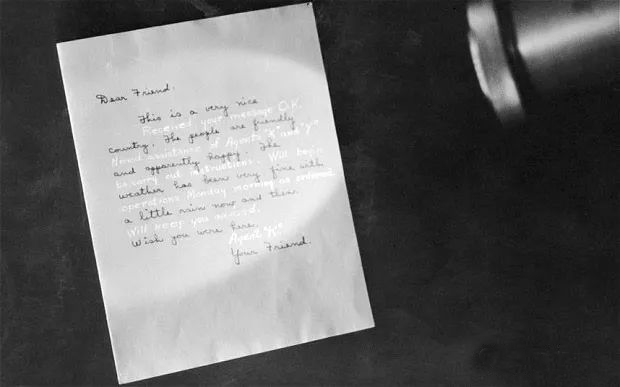 Dear Friend.
This is a very nice
Received your message O.K.
country. The people are friendly
assistance of Agents and
and apparently happy. The
to carry out instructions. Will begin
weather has been very fine with
operations Monday morning as ordered.
a little rain now and then.
Will keep you advised.
Wish you were here.
Agent
Your Friend.